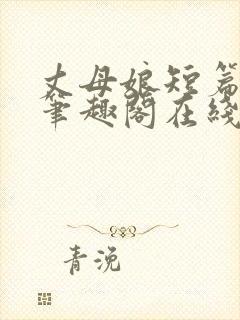 丈母娘短篇
笔趣阁在线
青浼